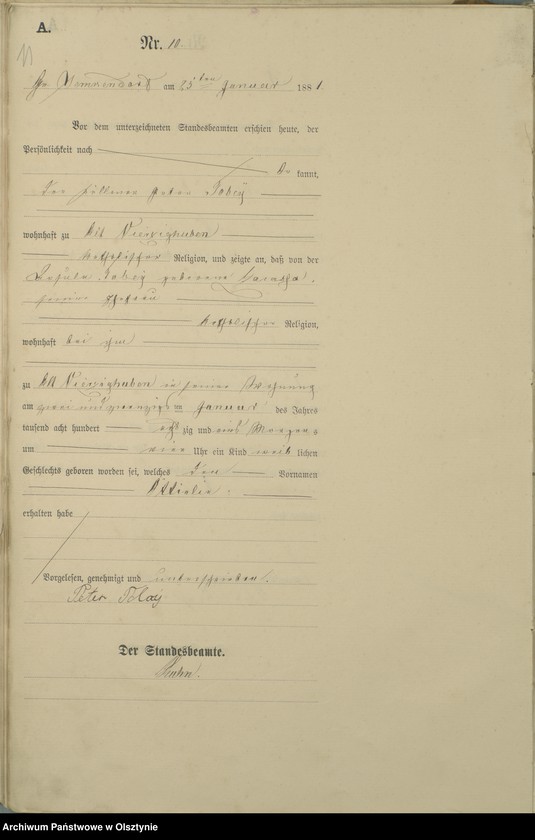 A.
11
Nr. 10.
am 25ten Januar 1881.
Vor dem unterzeichneten Standesbeamten erschien heute, der
Persönlichkeit nach
be kannt,
der Peter
wohnhaft zu Alt Vierzighuben
katholischer Religion, und zeigte an, daß von der
geborene
seiner Ehefrau
katholischer Religion,
wohnhaft bei ihm
zu Alt Vierzighuben in seiner Wohnung
am zwei und zwanzigsten Januar des Jahres
tausend acht hundert acht zig und eins Morgens
um vier Uhr ein Kind weib lichen
Geschlechts geboren worden sei, welches den Vornamen
Ottilie
erhalten habe
Vorgelesen, genehmigt und unterschrieben.
Peter
Der Standesbeamte.
Archiwum Państwowe w Olsztynie